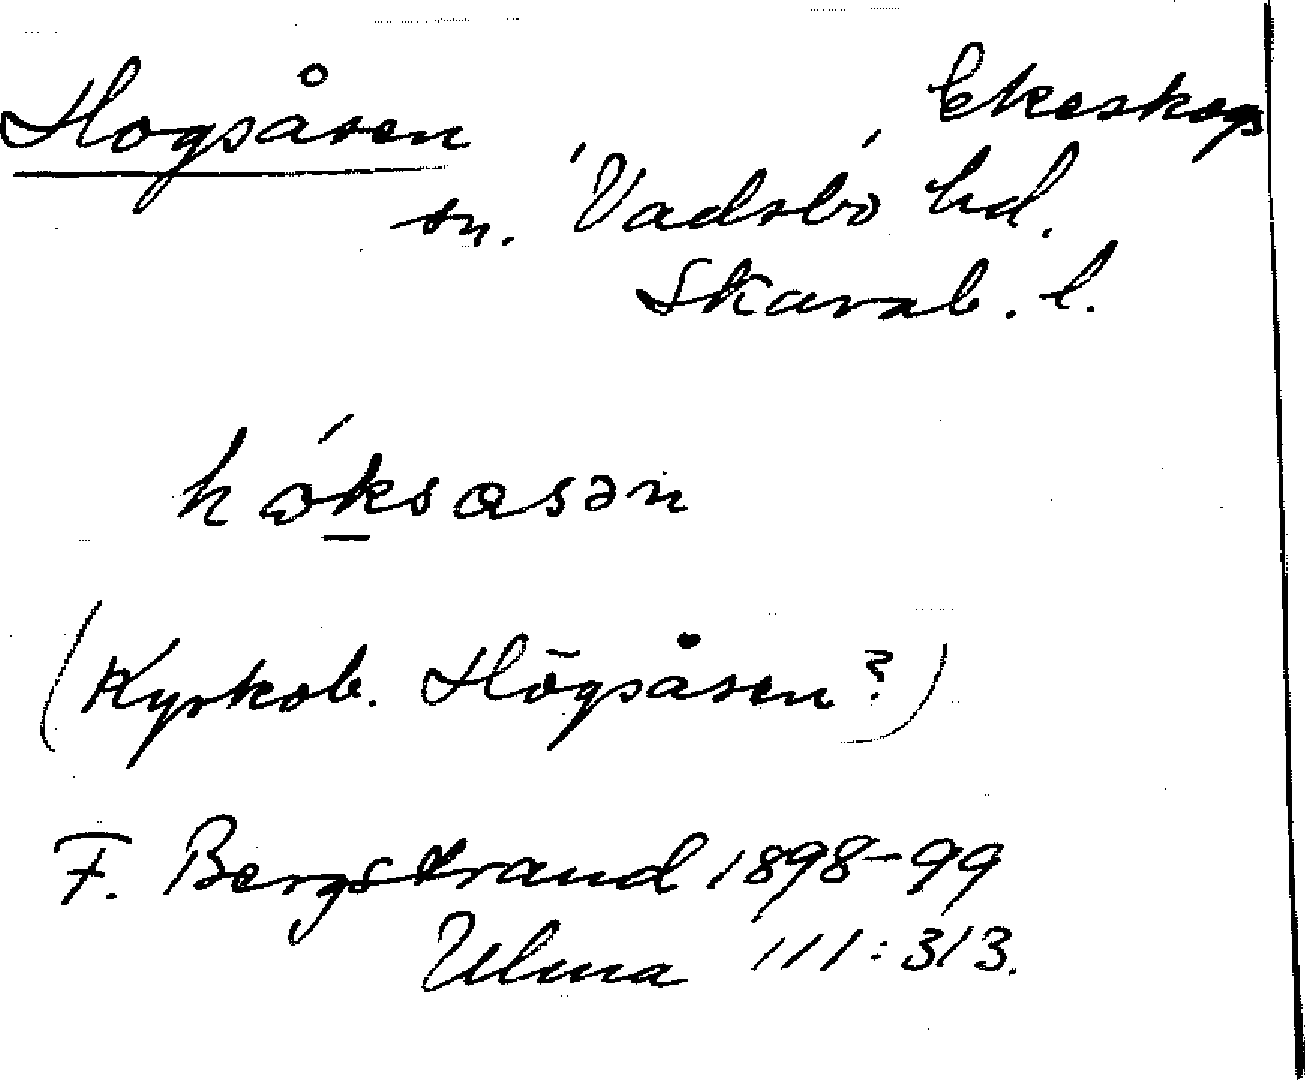 Hogsåsen Ekeskogs
sn. Vadsbo hd.
Skarab. l.
hóksasən
(Kyrkob. Högsåsen?)
F. Bergstrand 1898-99
Ulma 111:313.